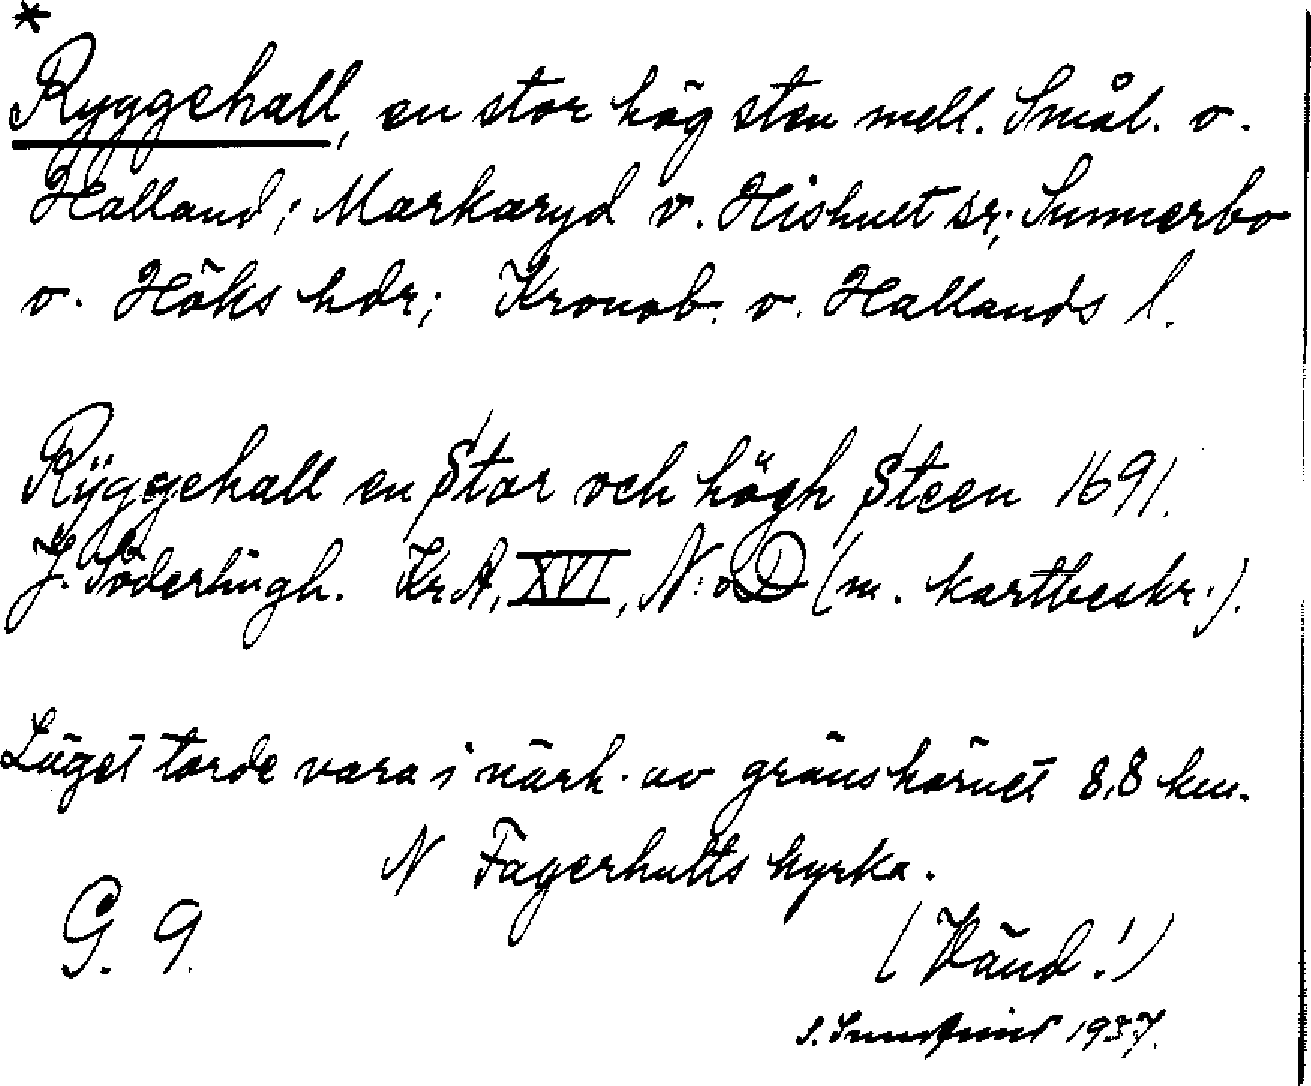 *
Ryggehall, en stor hög sten mell. Smål. o.
Halland; Markaryd o. Hishult sr; Sunnerbo
o. Höks hdr; Kronob. o. Hallands l.
Rÿggehall en Stor och högh Steen 1691.
J. Söderlingh. Kr.A, XVI, N:o (m. kartbeskr.).
Läget torde vara i närh. av gränshörnet 8,8 km.
N Fagerhults kyrka.
G. 9.
(Vänd!)
S. 1937.